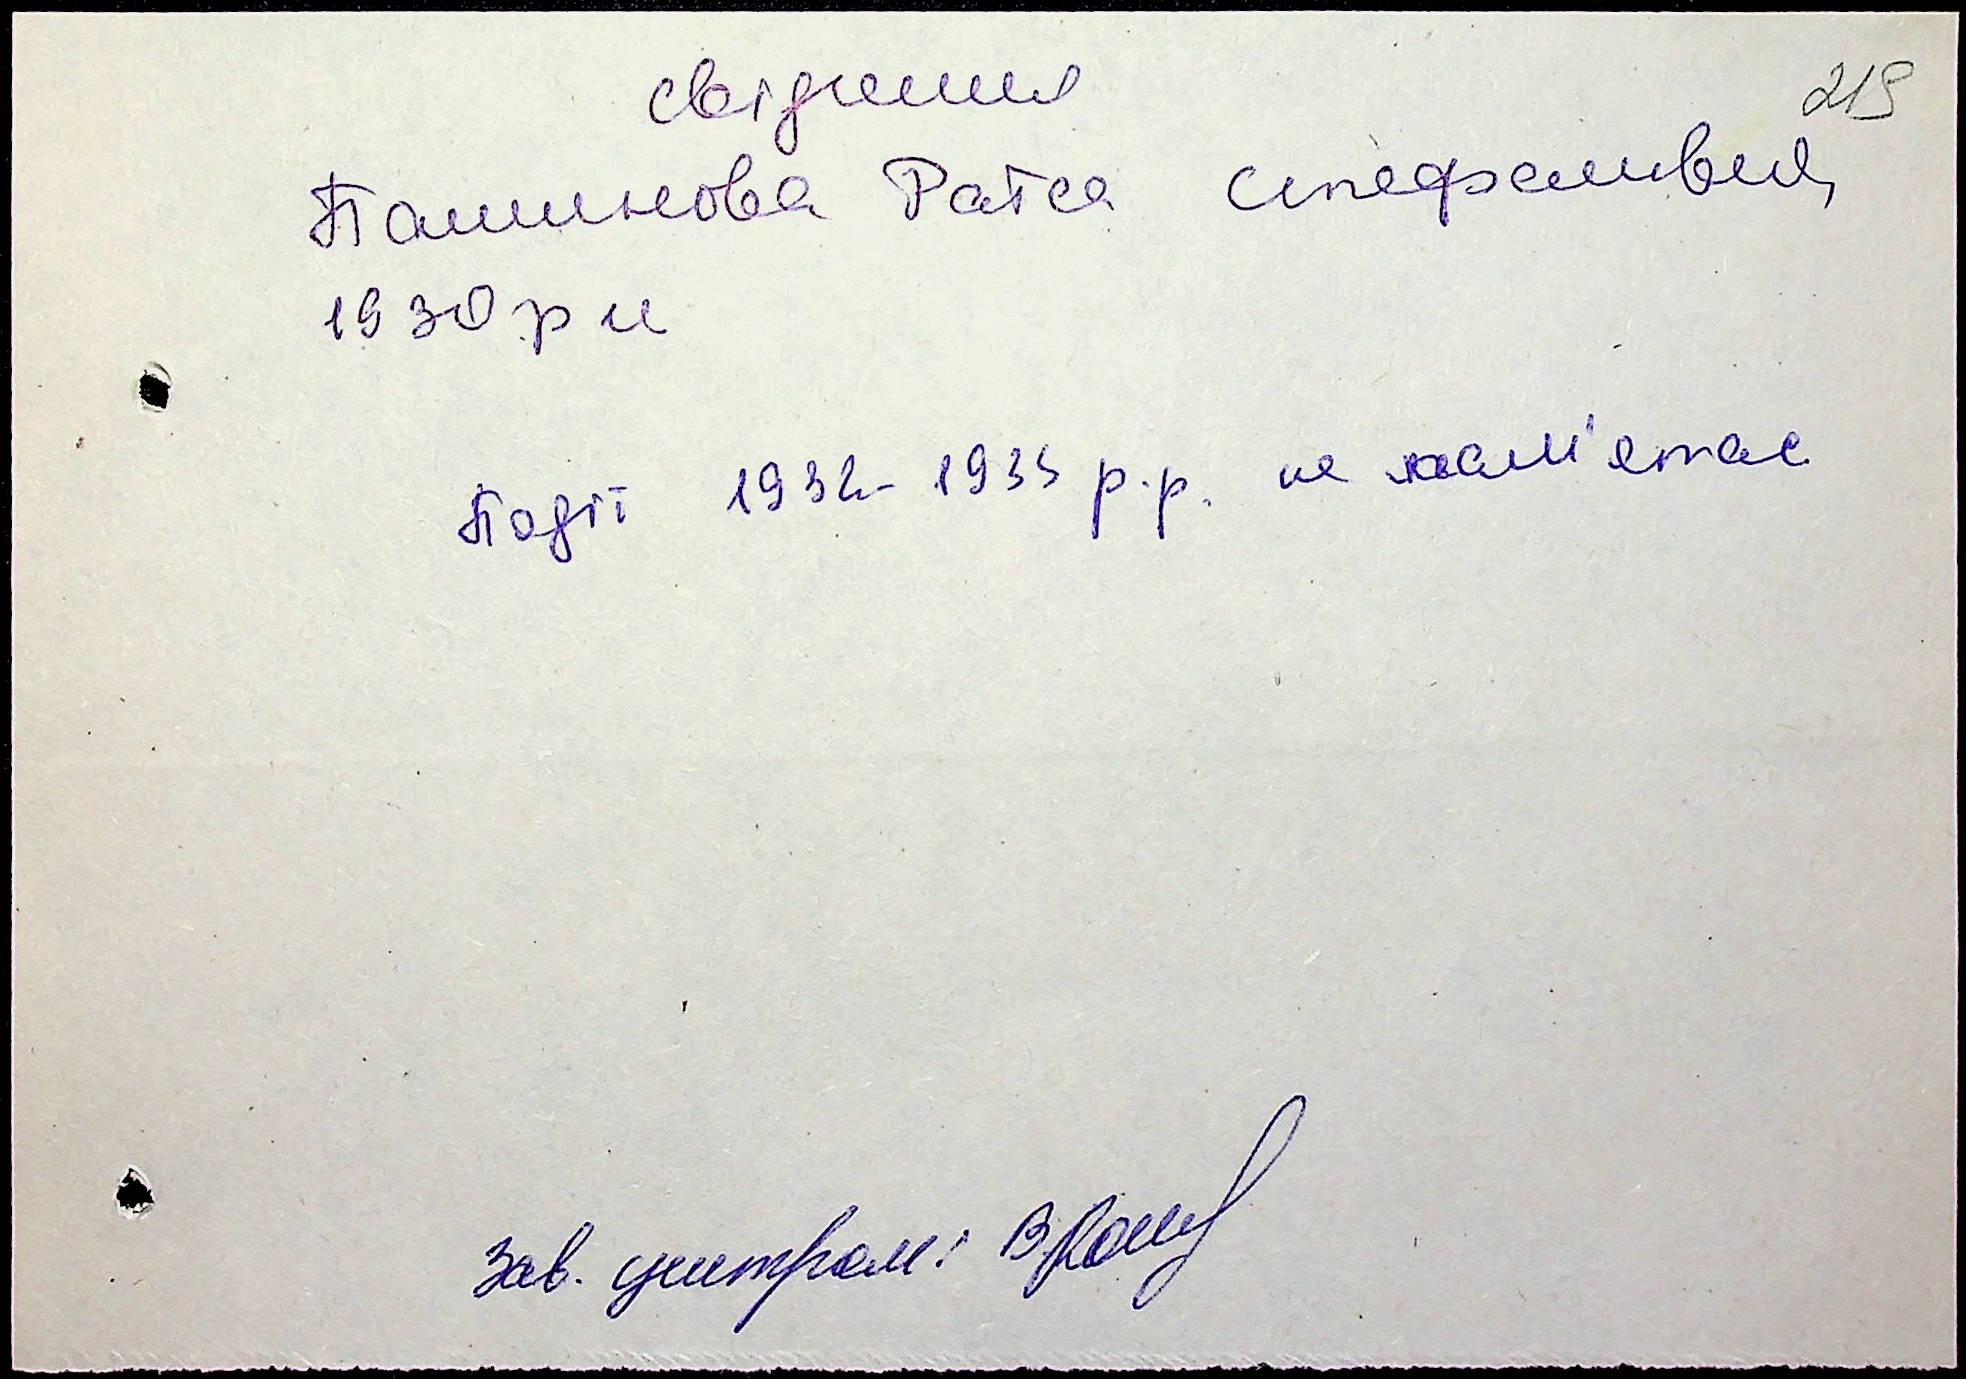 219
свідчення
Пашинова Раїса Стефанівна,
1930 р н
Події 1932-1933 р.р. не пам'ятає
Зав. центром: